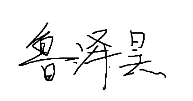 鲁泽昊